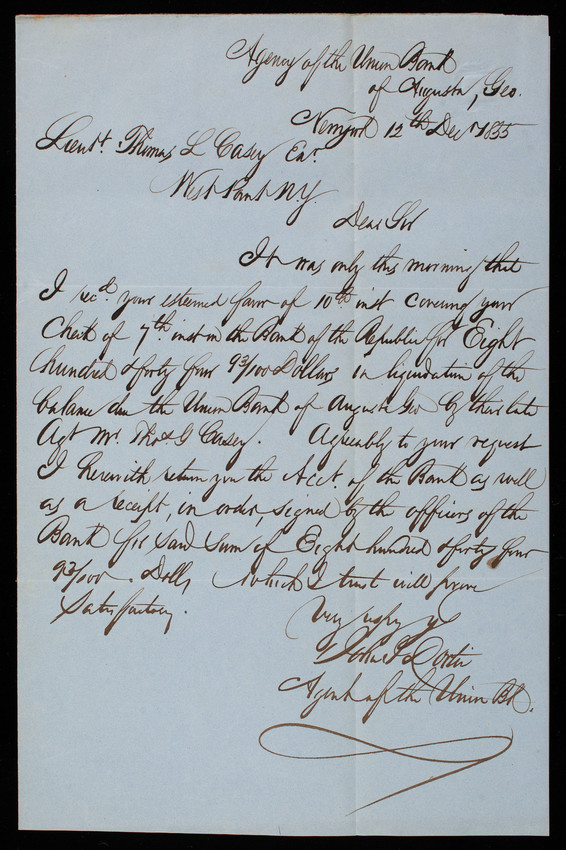 Agency of the Union Bank
of Augusta, Geo.
New york 12th Dec 1855
Lieut. Thomas L Casey Esqr.
West Point N.Y.
Dear Sir
It was only this morning that
I recd. your esteemed favor of 10th inst covering your
Check of 7th. inst on the Bank of the Republic for Eight
hundred & forty four 93/100 Dollars in liquidation of the
balance due the Union Bank of Augusta Geo by their late
Agt Mr. Thos G Casey. Agreeably to your request
I herewith return you the Acct of the Bank as well
as a receipt, in order, signed by the officers of the
Bank for said sum of Eight hundred & forty four
93/100. Dolls, which I trust will prove
Satisfactory.
Very respy yr
Agent of the Union Bk.